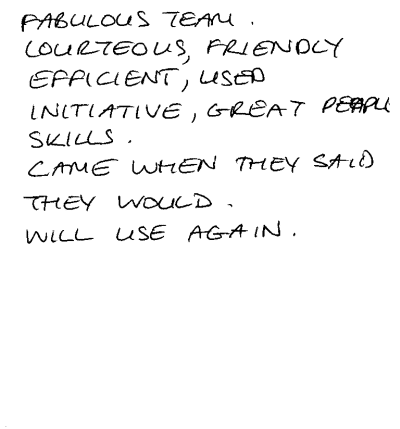 FABULOUS TEAM.
COURTEOUS, FRIENDLY
EFFICIENT, USED
INITIATIVE, GREAT PEOPLE
SKILLS.
CAME WHEN THEY SAID
THEY WOULD.
WILL USE AGAIN.